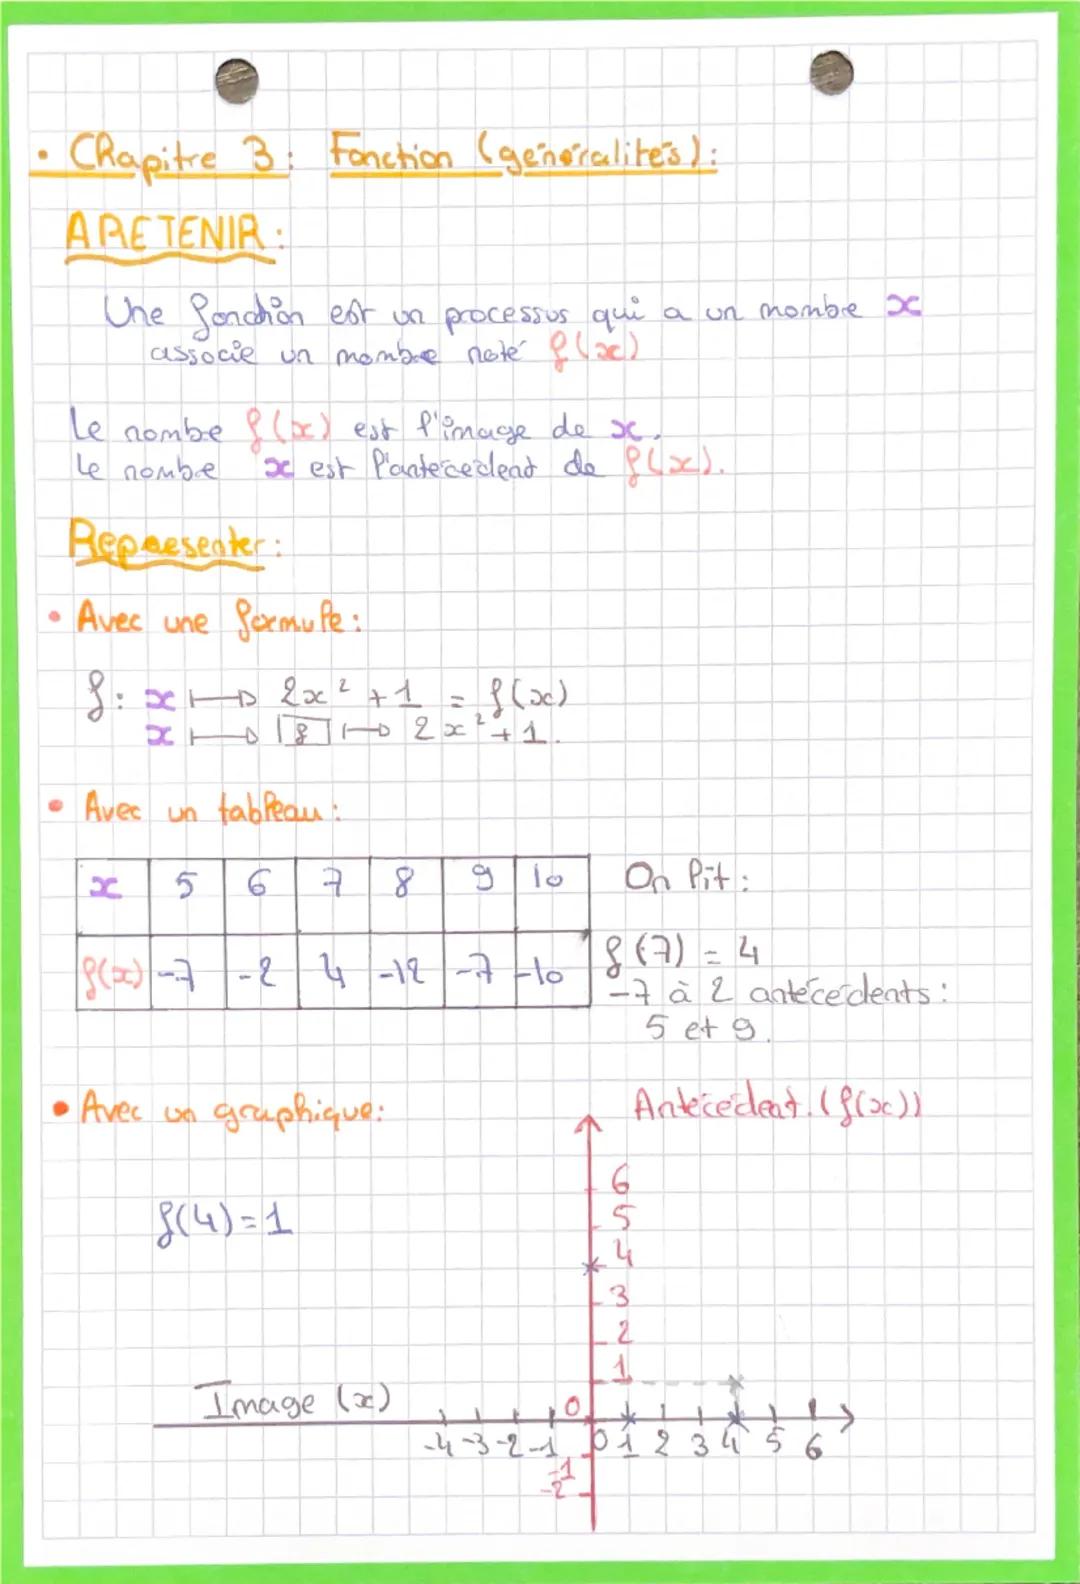 • Chapitre 3 : Fonction (généralités) :
A RETENIR :
Une fonction est un processus qui a un nombre x
associe un nombre noté f(x)
Le nombre f(x) est l'image de x.
Le nombre x est l'antécédent de f(x).
Représenter :
• Avec une formule :
f : x ⟼ 2x² + 1 = f(x)
x ⟼ [f] ⟼ 2x² + 1.
• Avec un tableau :
x 5 6 7 8 9 10 On lit :
f(x) -7 -2 4 -12 -7 -10 f(7) = 4
-7 à 2 antécédents :
5 et 9.
• Avec un graphique : Antécédent. (f(x))
6
f(4) = 1 5
4
3
2
1
Image (x) 0
-4 -3 -2 -1 0 1 2 3 4 5 6
-1
-2